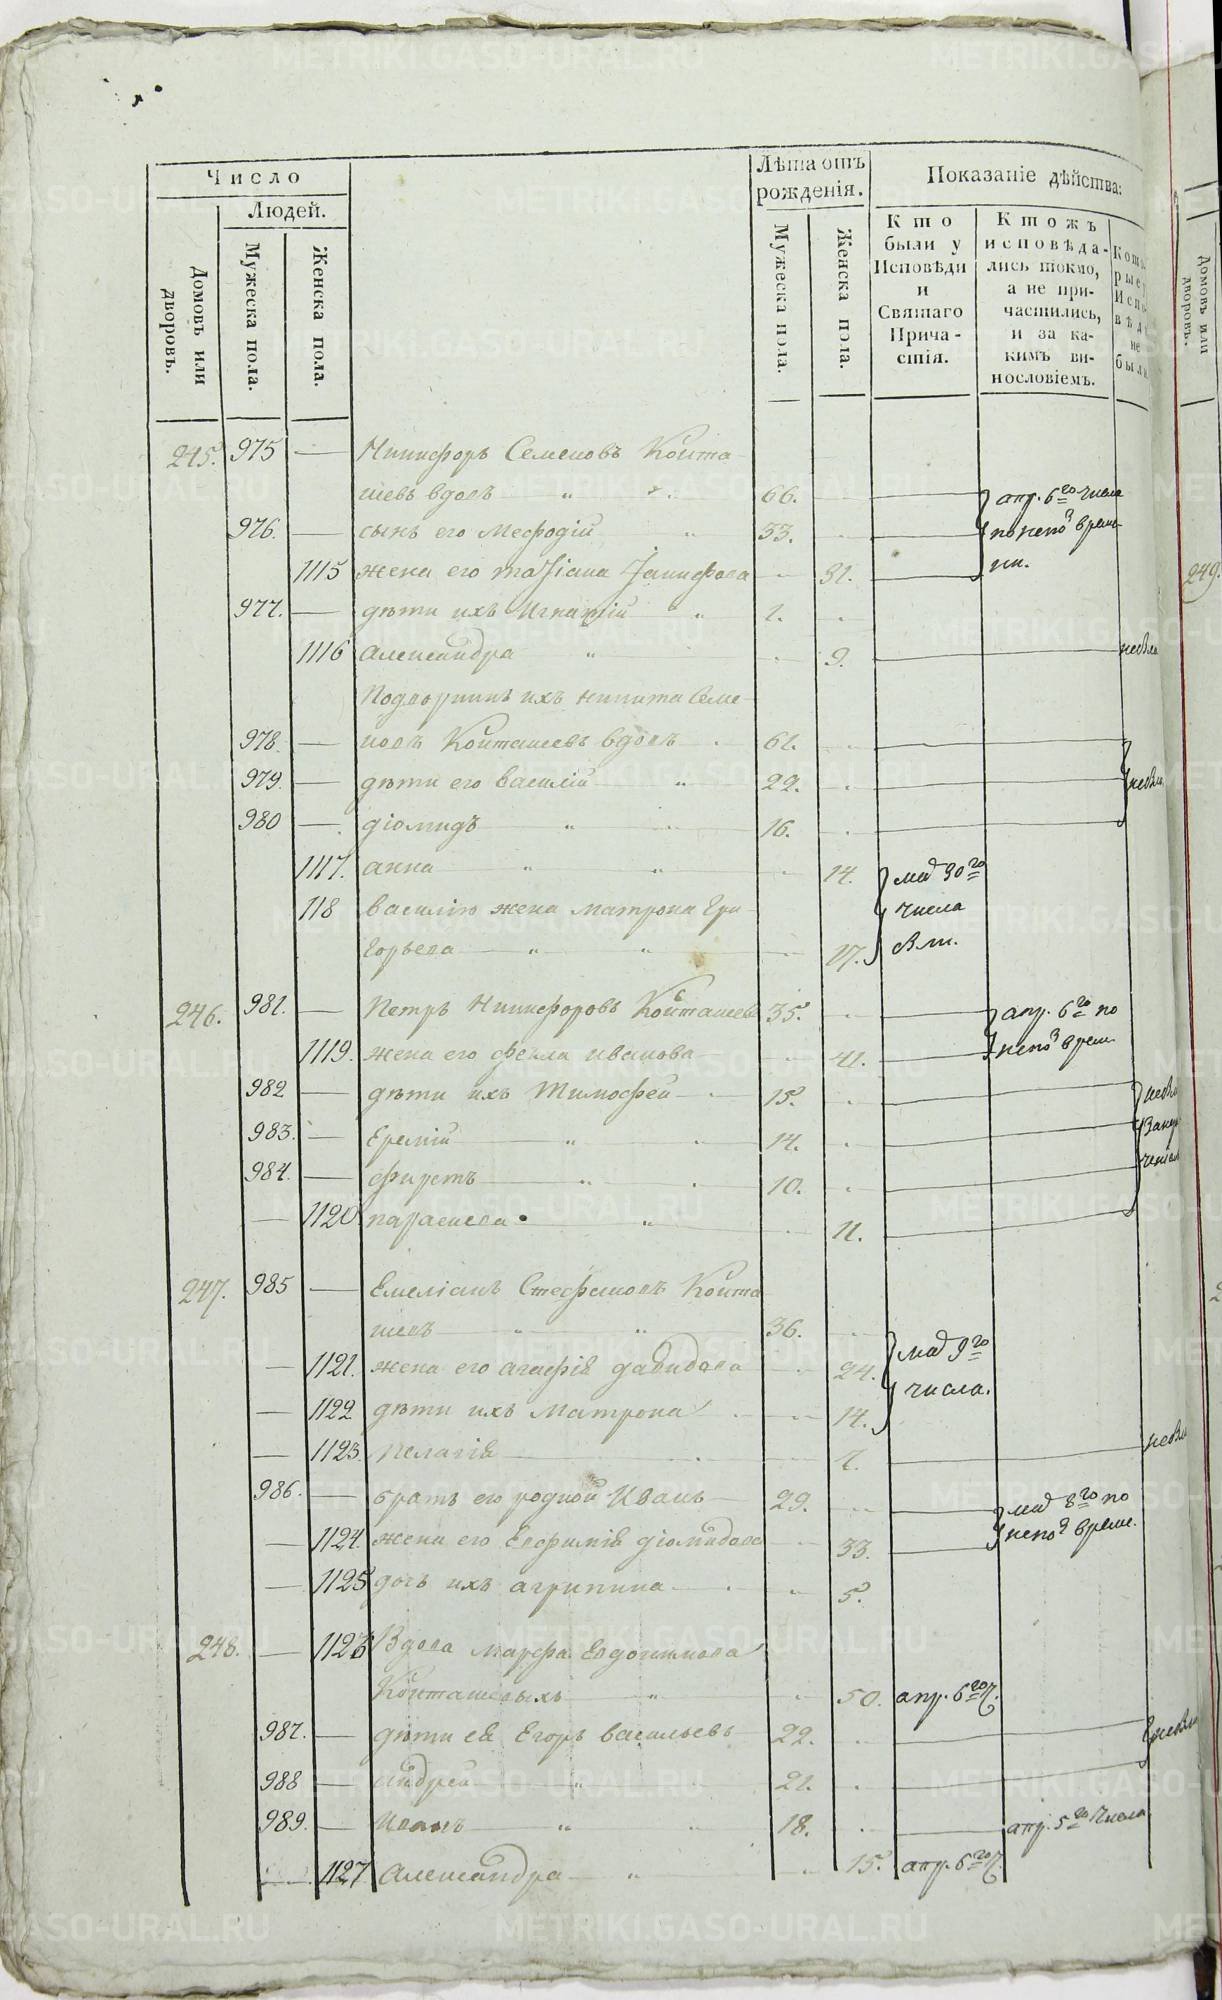 Число
Людей.
Домовъ или дворовъ.
Мужеска пола.
Женска пола.
Лѣта отъ рожденія.
Мужеска пола.
Женска пола.
Показаніе дѣйства:
Кто были у Исповѣди и Святаго Причастія.
Ктожъ исповѣдались токмо, а не причастились, и за какимъ винословіемъ.
245. 975 — Никифоръ Семеновъ Койта
шевъ вдовъ — 66. — апр. 6го числа
976. — сынъ его Мефодій 33. —
1115 жена его — 31. —
977. — дѣти ихъ Игнатій
1116 Александра — 9. —
Подворникъ ихъ Никита Семе
978. — новъ Койташевъ вдовъ 61. —
979. — дѣти его Василій 22. —
980 — Діомидъ 16. —
1117. Анна — 14. маія 30го
118 Василію жена Матрона Гри — числа
горьева — 17.
246. 981. — Петръ Никифоровъ Койташевъ 35. — апр. 6го по
1119. жена его Фекла Иванова — 41. —
982 — дѣти ихъ Тимофей 15. —
983. — Еремій 14. —
984. — Фирстъ 10. —
1120 Параскева — 11. —
247. 985 — Емеліанъ Стефановъ Койта
шевъ — 36.
1121. жена его Агафія Давидова — 24. маія 9го
1122 дѣти ихъ Матрона — 14. числа.
1123. Пелагія
986. — братъ его родной Иванъ 29. — маія 8го по
1124. жена его Евфимія Діомидова — 33. —
1125 дочь ихъ Агрипина — 5.
248. — 1126 Вдова Марфа Евдокимова
Койташевыхъ — 50. апр. 6го ч.
987. — дѣти ея Егоръ Васильевъ 22. —
988 — Андрей 21. —
989. — Иванъ 18. — апр. 5го числа
1127 Александра — 15. апр. 6го ч.
249.
METRIKI.GASO-URAL.RU